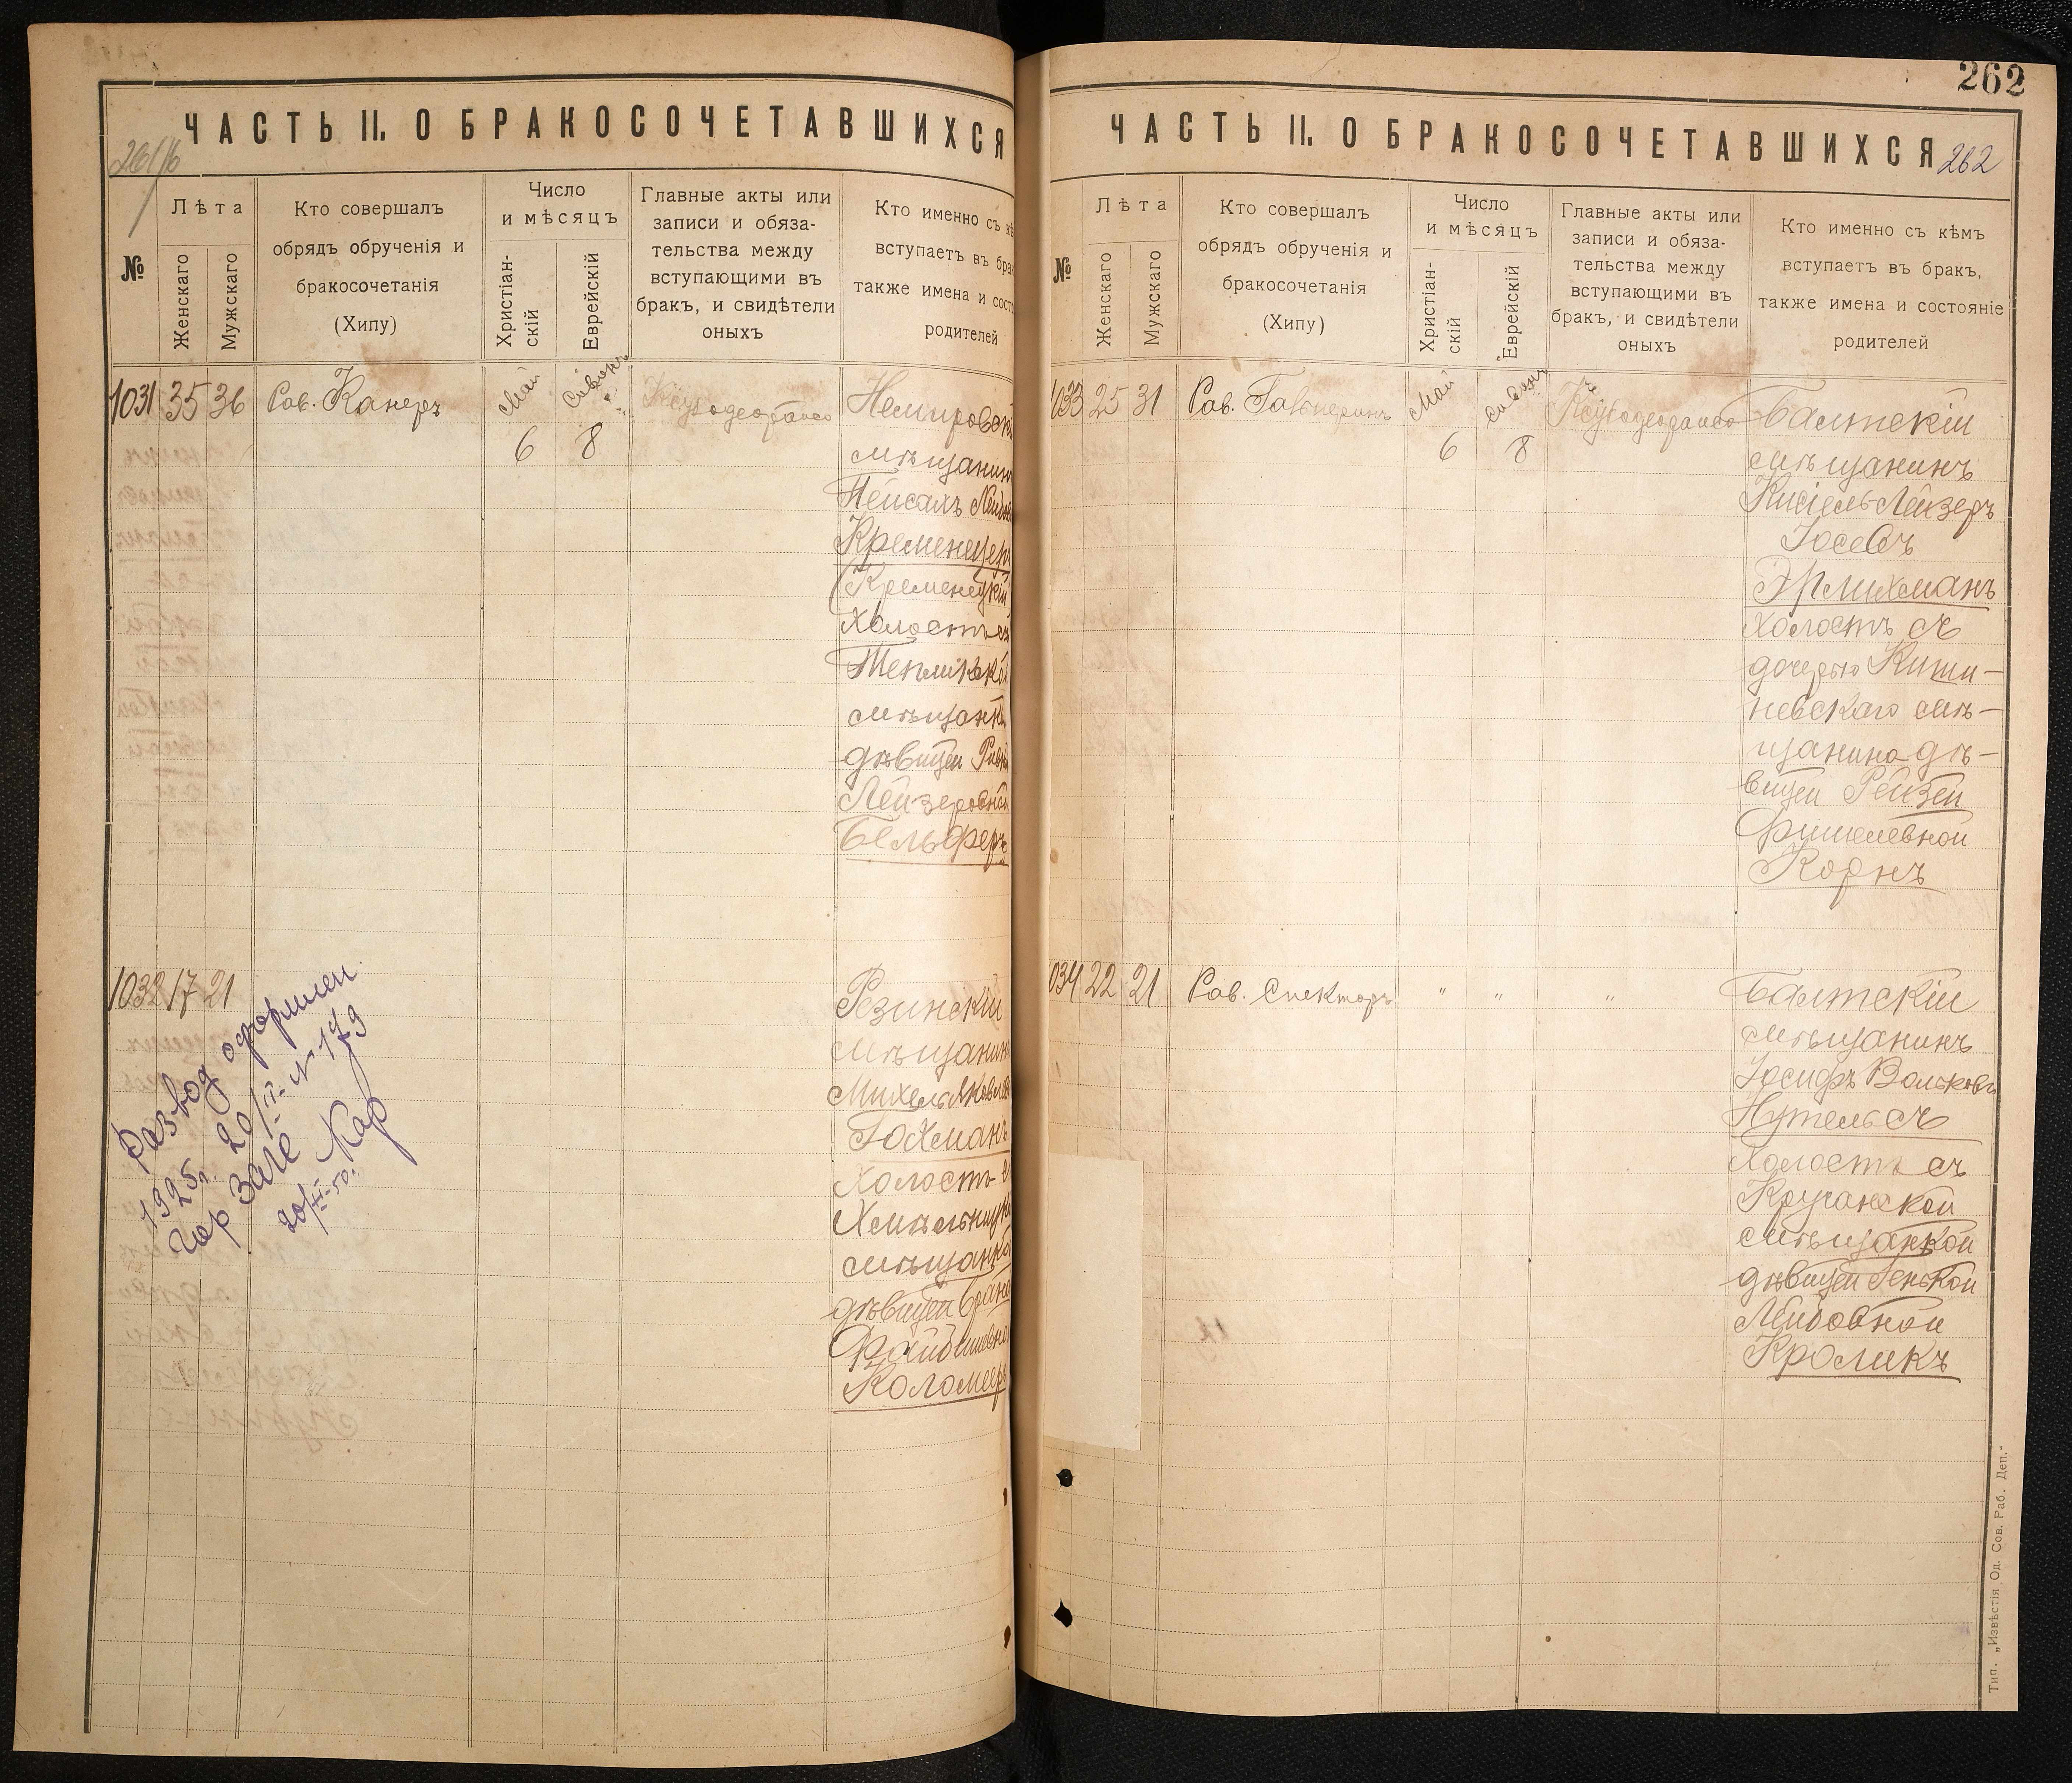 ЧАСТЬ II. О БРАКОСОЧЕТАВШИХСЯ
№
Лѣта
Женскаго
Мужскаго
Кто совершалъ
обрядъ обрученія и
бракосочетанія
(Хипу)
Число
и мѣсяцъ
Христіан-
скій
Еврейскій
Главные акты или
записи и обяза-
тельства между
вступающими въ
бракъ, и свидѣтели
оныхъ
Кто именно съ кѣ
вступаетъ въ бра
также имена и сост
родителей
1031 35 36 Рав. Канеръ
Май 6
Сивонъ 8
Немировск
мѣщанинъ
Пейсахъ
Кременецеръ
(Кременецкій
холостъ съ
Тепликской
мѣщанк
дѣвицей
Лейзеровной
Бельферъ
1032 17 21
Резинскій
мѣщанинъ
Михель
Гохманъ
холостъ
Хмѣльницк
мѣщанко
дѣвицей
Файбишевно
Коломеер
Развод оформлен
1925г. 20/II. N 179
Гор Загс Кар
262
ЧАСТЬ II. О БРАКОСОЧЕТАВШИХСЯ
262
№
Лѣта
Женскаго
Мужскаго
Кто совершалъ
обрядъ обрученія и
бракосочетанія
(Хипу)
Число
и мѣсяцъ
Христіан-
скій
Еврейскій
Главные акты или
записи и обяза-
тельства между
вступающими въ
бракъ, и свидѣтели
оныхъ
Кто именно съ кѣмъ
вступаетъ въ бракъ,
также имена и состояніе
родителей
1033 25 31 Рав. Гальперинъ
Май 6
Сивонъ 8
Балтскій
мѣщанинъ
Кисіель-Лейзеръ
Іосевъ
Эрлихманъ
холостъ съ
дочерью Киши-
невскаго мѣ-
щанина дѣ-
вицей Рейзей
Фишелевной
Корнъ
034 22 21 Рав. Спекторъ " " "
Балтскій
мѣщанинъ
Іосифъ Вольковъ
Нутельсъ
холостъ съ
мѣщанкой
дѣвицей Генькой
Лейбовной
Кроликъ
Тип. „Извѣстія Од. Сов. Раб. Деп."